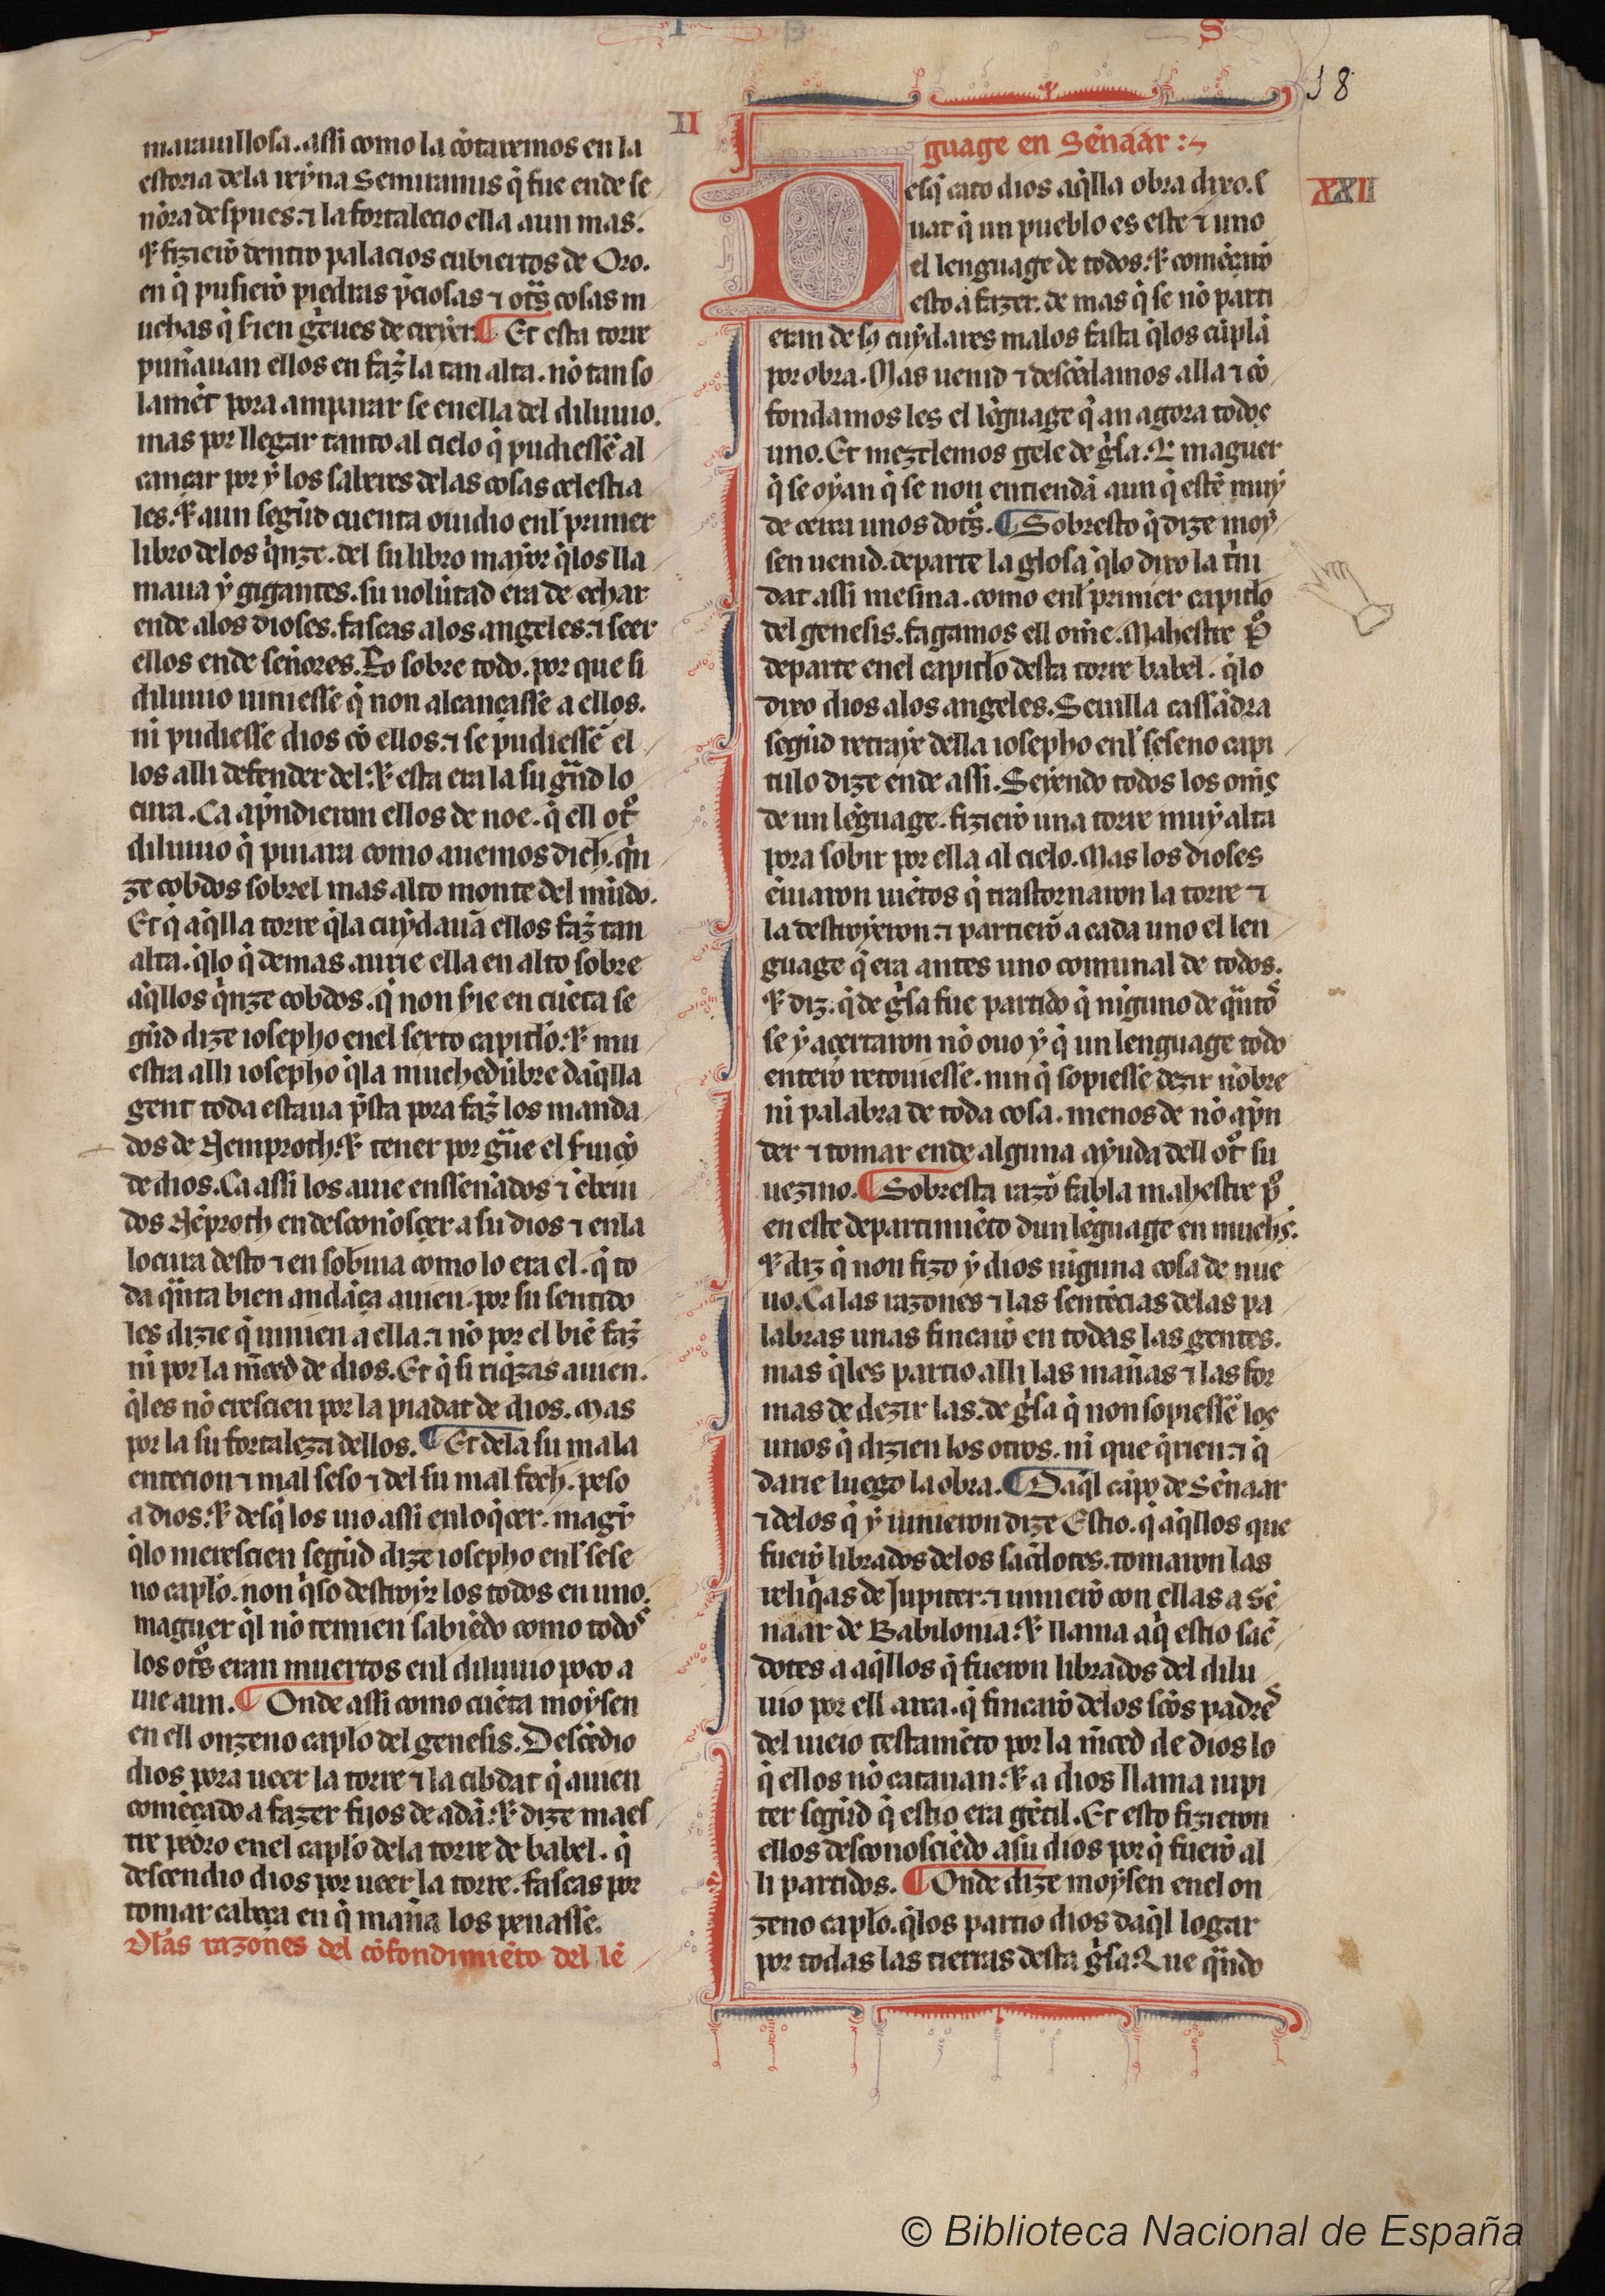 S
18
II
marauillosa. assi como la cōtaremos en la
estoria dela reẏna Semiramis q̄ fue ende se
nōra despues. ⁊ la fortalecio ella aun mas.
⁊ fizierō dentro palacios cubiertos de Oro.
en q̄ pusierō piedras p̄ciosas ⁊ ot̄s cosas m
uchas q̄ serien g̃ues de creẏer. ¶ Et esta torre
punnauan ellos en faz̄ la tan alta. nō tan so
lamēt pora amparar se enella del diluuio.
mas por llegar tanto al cielo q̄ pudiessē al
cançar por ẏ los saberes delas cosas celestia
les. ⁊ aun segūd cuenta ouidio enl primer
libro delos q̄nze. del su libro maẏor q̄los lla
maua ẏ gigantes. su uolūtad era de echar
ende alos dioses. fascas alos angeles. ⁊ seer
ellos ende sennores. Lo sobre todo. por que si
diluuio uiniesse q̄ non alcançasse a ellos.
ni pudiesse dios cō ellos. ⁊ se pudiessē el
los alli defender del: ⁊ esta era la su g̃nd lo
cura. Ca ap̄ndieron ellos de noe. q̄ ell ot̄o
diluuio q̄ puiara como auemos dich. q̄n
ze cobdos sobrel mas alto monte del mūdo.
Et q̄ aq̄lla torre q̄la cuẏdauā ellos faz̄ tan
alta. q̄lo q̄ demas aurie ella en alto sobre
aq̄llos q̄nze cobdos. q̄ non serie en cuēta se
gūd dize iosepho enel sexto capitl̄o: ⁊ mu
estra alli iosepho q̄la muchedūbre daq̄lla
gent toda estaua p̄sta pora faz̄ los manda
dos de Nemproth: ⁊ tener por g̃ue el seruicō
de dios. Ca assi los auie ensennados ⁊ ēbeui
dos Nēproth en desconoscer a su dios ⁊ enla
locura desto ⁊ en soberuia como lo era el. q̄ to
da q̄nta bien andāça auien. por su sentido
les dizie q̄ uinien a ella. ⁊ nō por el biē faz̄
ni por la m̄ced de dios. Et q̄ si riq̄zas auien.
q̄les nō crescien por la piadat de dios. Mas
por la su fortaleza dellos. ¶ Et dela su mala
entencion ⁊ mal seso ⁊ del su mal fech. peso
a dios: ⁊ desq̄ los uio assi enloq̄cer. mag̃r
q̄lo merescien segūd dize iosepho enl sese
no capl̄o. non q̄so destroẏr los todos en uno.
maguer q̄l nō temien sabiēdo como todos
los ot̄s eran muertos enl diluuio poco a
uie aun. ¶ Onde assi como cuēta moẏsen
en ell onzeno capl̄o del genesis. Descēdio
dios pora ueer la torre ⁊ la cibdat q̄ auien
comēçado a fazer fijos de adā: ⁊ dize maes
tre pedro enel capl̄o dela torre de babel. q̄
descendio dios por ueer la torre. fascas por
tomar cabeça en q̄ manna los penasse.
Dlas razones del cōfondimiēto del lē
guage en Sēnaar:
XXII
Desq̄ cato dios aq̄lla obra dixo. c
uat q̄ un pueblo es este ⁊ uno
el lenguage de todos: ⁊ comēçarō
esto a fazer. de mas q̄ se nō parti
eran de sꝯ cuẏdares malos fasta q̄los cūplā
por obra. Mas uenid ⁊ descēdamos alla ⁊ cō
fondamos les el lēguage q̄ an agora todos
uno. Et mezclemos gele de g̃sa. Q̄ maguer
q̄ se oẏan q̄ se non entiendā aun q̄ estē muẏ
de cerca unos dot̄s. ¶ Sobresto q̄ dize moẏ
sen uenid. departe la glosa q̄lo dixo la t̄ni
dat assi mesma. como enl primer capitl̄o
del genesis. fagamos ell om̄e. Mahestre P̄o
departe enel capitl̄o desta torre babel. q̄lo
dixo dios alos angeles. Seuilla cassādra
segūd retraẏe della iosepho enl seseno capi
tulo dize ende assi. Seẏendo todos los om̄s
de un lēguage. fizierō una torre muẏ alta
pora sobir por ella al cielo. Mas los dioses
ēuiaron uiētos q̄ trastornaron la torre ⁊
la destroẏeron. ⁊ partierō a cada uno el len
guage q̄ era antes uno comunal de todos.
⁊ diz. q̄ de g̃sa fue partido q̄ niguno de q̄ntos
se ẏ acertaron nō ouo ẏ q̄ un lenguage todo
enterō retouiesse. nin q̄ sopiesse dezir nōbre
ni palabra de toda cosa. menos de nō ap̄n
der ⁊ tomar ende alguna aẏuda dell ot̄o su
uezino. ¶ Sobresta razō fabla mahestre p̄o
en este departimiēto dun lēguage en muchꝯ.
⁊ diz q̄ non fizo ẏ dios niguna cosa de nue
uo. Ca las razones ⁊ las sentēcias delas pa
labras unas fincarō en todas las gentes.
mas q̄les partio alli las mannas ⁊ las for
mas de dezir las. de g̃sa q̄ non sopiessē los
unos q̄ dizien los otros. ni que q̄rien. ⁊ q̄
darie luego la obra. ¶ Daq̄l cāpo de Sēnaar
⁊ delos q̄ ẏ uinieron dize Estio. q̄ aq̄llos que
fuerō librados delos sac̄dotes. tomaron las
reliq̄as de Jupiter. ⁊ uinierō con ellas a sē
naar de Babilonia: ⁊ llama aq̄ estio sac̄
dotes a aq̄llos q̄ fueron librados del dilu
uio por ell arca. q̄ fincarō delos sc̄os padres
del uieio testamēto por la m̄ced de dios lo
q̄ ellos nō catauan: ⁊ a dios llama iupi
ter segūd q̄ estio era gētil. Et esto fizieron
ellos desconosciēdo a su dios por q̄ fuerō al
li partidos. ¶ Onde dize moẏsen enel on
zeno capl̄o. q̄los partio dios daq̄l logar
por todas las tierras desta g̃sa. Que q̄ndo
© Biblioteca Nacional de España